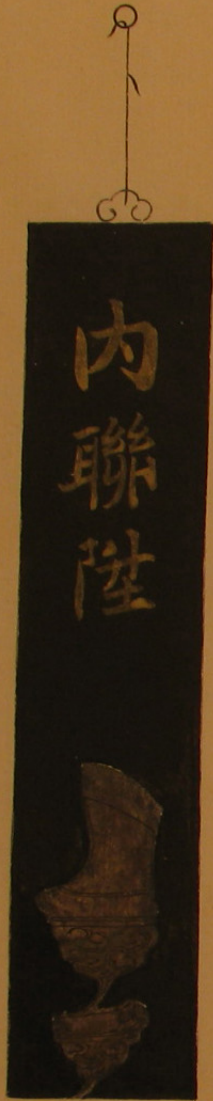 内聯陞